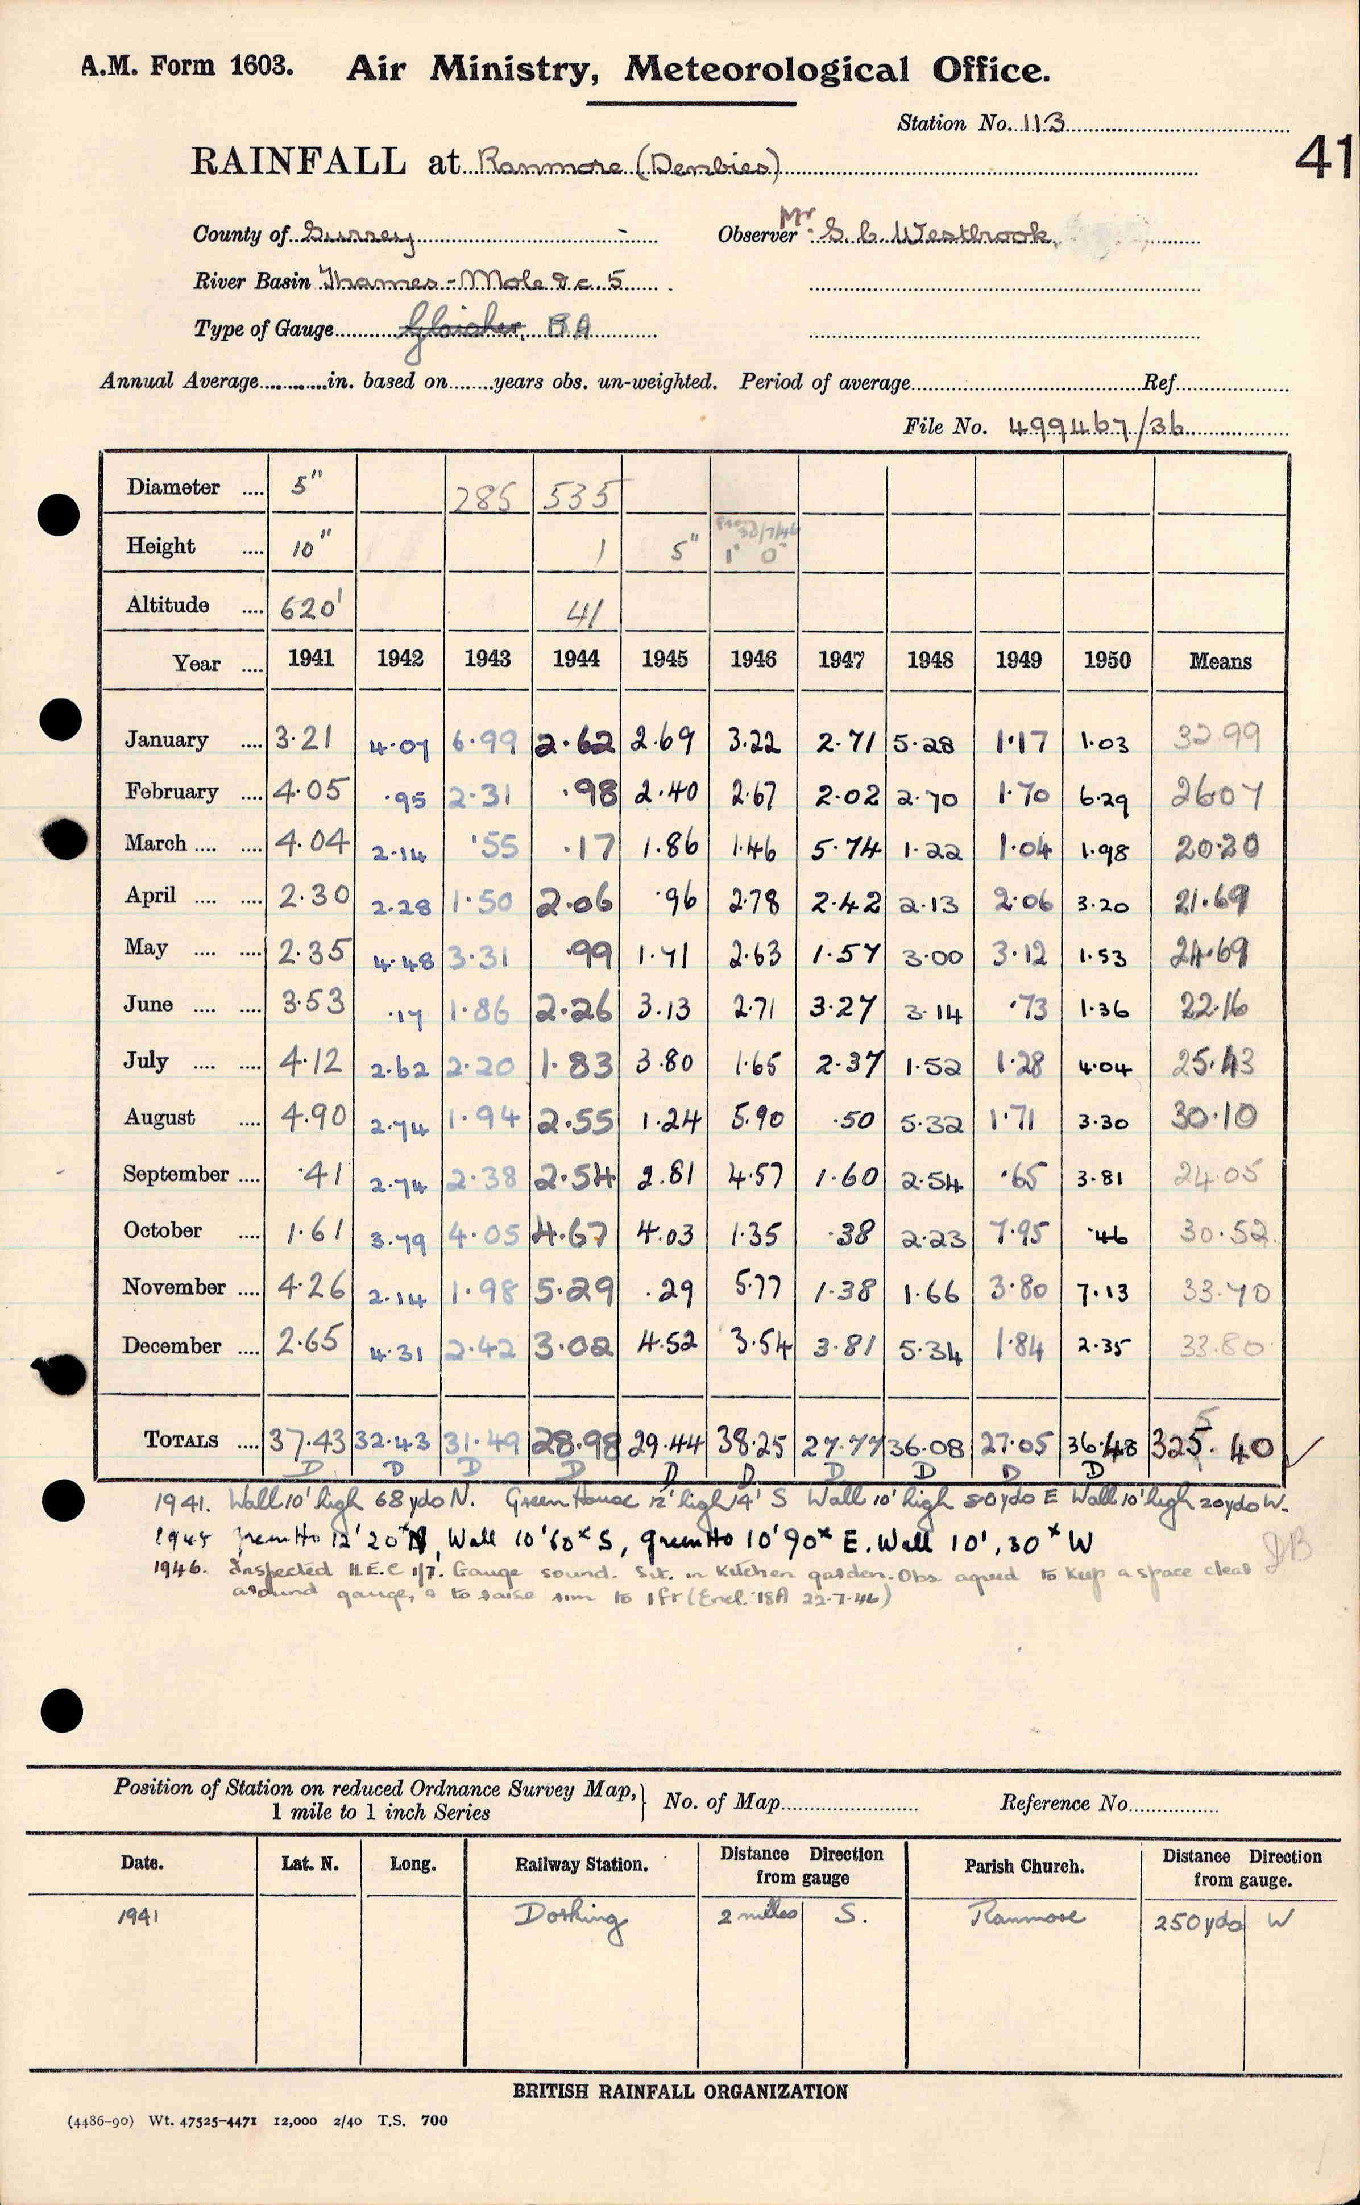 A.M. Form 1603. Air Ministry, Meteorological Office.
Station No. 113
RAINFALL at Ranmore (Denbies)
41
County of Surrey Observer Mr. G. C. Westbrook.
River Basin Thames - Mole &c. 5
Type of Gauge Glaisher, BA
Annual Average in. based on years obs. un-weighted. Period of average Ref.
File No. 499467/36
Diameter 5" 285 535
Height 10" 1 5" 1' 0"
Altitude 620' 41
Year 1941 1942 1943 1944 1945 1946 1947 1948 1949 1950 Means
January 3.21 4.07 6.99 2.62 2.69 3.22 2.71 5.28 1.17 1.03 32.99
February 4.05 .95 2.31 .98 2.40 2.67 2.02 2.70 1.70 6.29 26.07
March 4.04 2.14 .55 .17 1.86 1.46 5.74 1.22 1.04 1.98 20.20
April 2.30 2.28 1.50 2.06 .96 2.78 2.42 2.13 2.06 3.20 21.69
May 2.35 4.48 3.31 .99 1.71 2.63 1.57 3.00 3.12 1.53 24.69
June 3.53 .17 1.86 2.26 3.13 2.71 3.27 3.14 .73 1.36 22.16
July 4.12 2.62 2.20 1.83 3.80 1.65 2.37 1.52 1.28 4.04 25.43
August 4.90 2.74 1.94 2.55 1.24 5.90 .50 5.32 1.71 3.30 30.10
September .41 2.74 2.38 2.54 2.81 4.57 1.60 2.54 .65 3.81 24.05
October 1.61 3.79 4.05 4.67 4.03 1.35 .38 2.23 7.95 .46 30.52
November 4.26 2.14 1.98 5.29 .29 5.77 1.38 1.66 3.80 7.13 33.70
December 2.65 4.31 2.42 3.02 4.52 3.54 3.81 5.34 1.84 2.35 33.80
5
TOTALS 37.43 32.43 31.49 28.98 29.44 38.25 27.77 36.08 27.05 36.48 325.40 ✓
D D D D D D D D D D
1941. Wall 10' high 68 yds N. Green House 12' high 14' S Wall 10' high 50 yds E Wall 10' high 20 yds W.
1945 Green Ho 12' 20ˣ N, Wall 10' 60ˣ S, green Ho 10' 90ˣ E. Wall 10', 30ˣ W
JB
1946. Inspected H.E.C 1/7. Gauge sound. Sit. in Kitchen garden. Obs agreed to keep a space clear
around gauge, & to raise rim to 1 ft (Encl. 18A 22-7-46)
Position of Station on reduced Ordnance Survey Map, } No. of Map Reference No.
1 mile to 1 inch Series
Date. Lat. N. Long. Railway Station. Distance Direction from gauge Parish Church. Distance Direction from gauge.
1941 Dorking 2 miles S. Ranmore 250 yds W
BRITISH RAINFALL ORGANIZATION
(4486-90) Wt. 47525-4471 12,000 2/40 T.S. 700